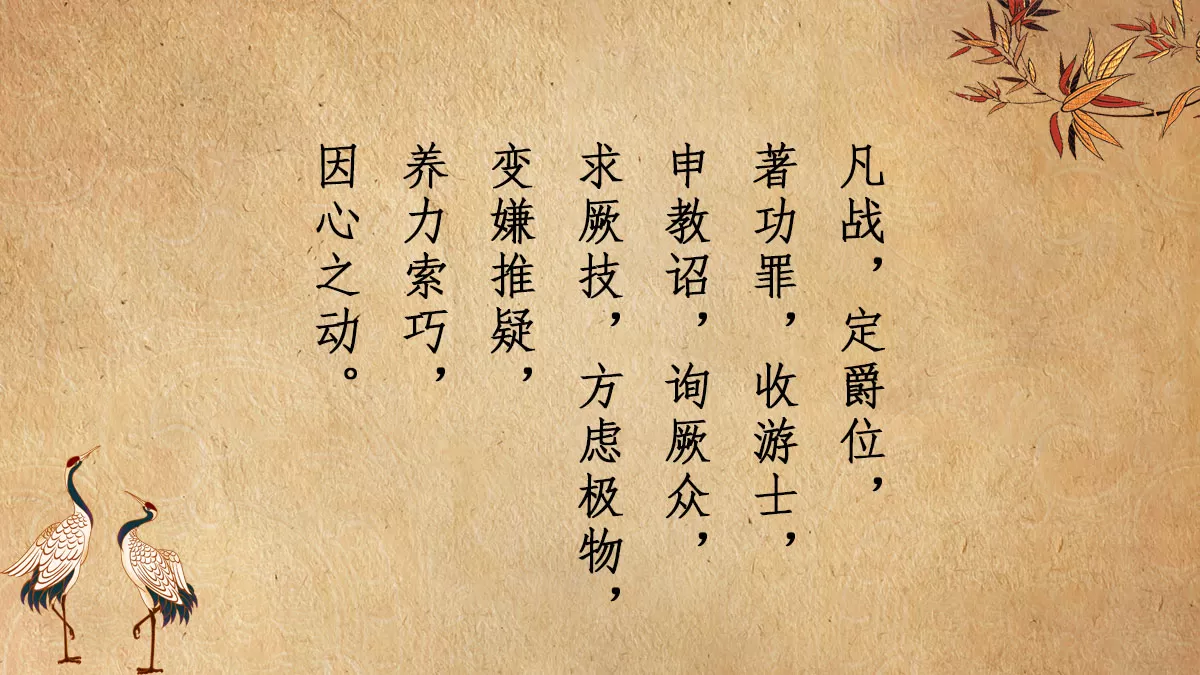 凡战，定爵位，
著功罪，收游士，
申教诏，询厥众，
求厥技，方虑极物，
变嫌推疑，
养力索巧，
因心之动。